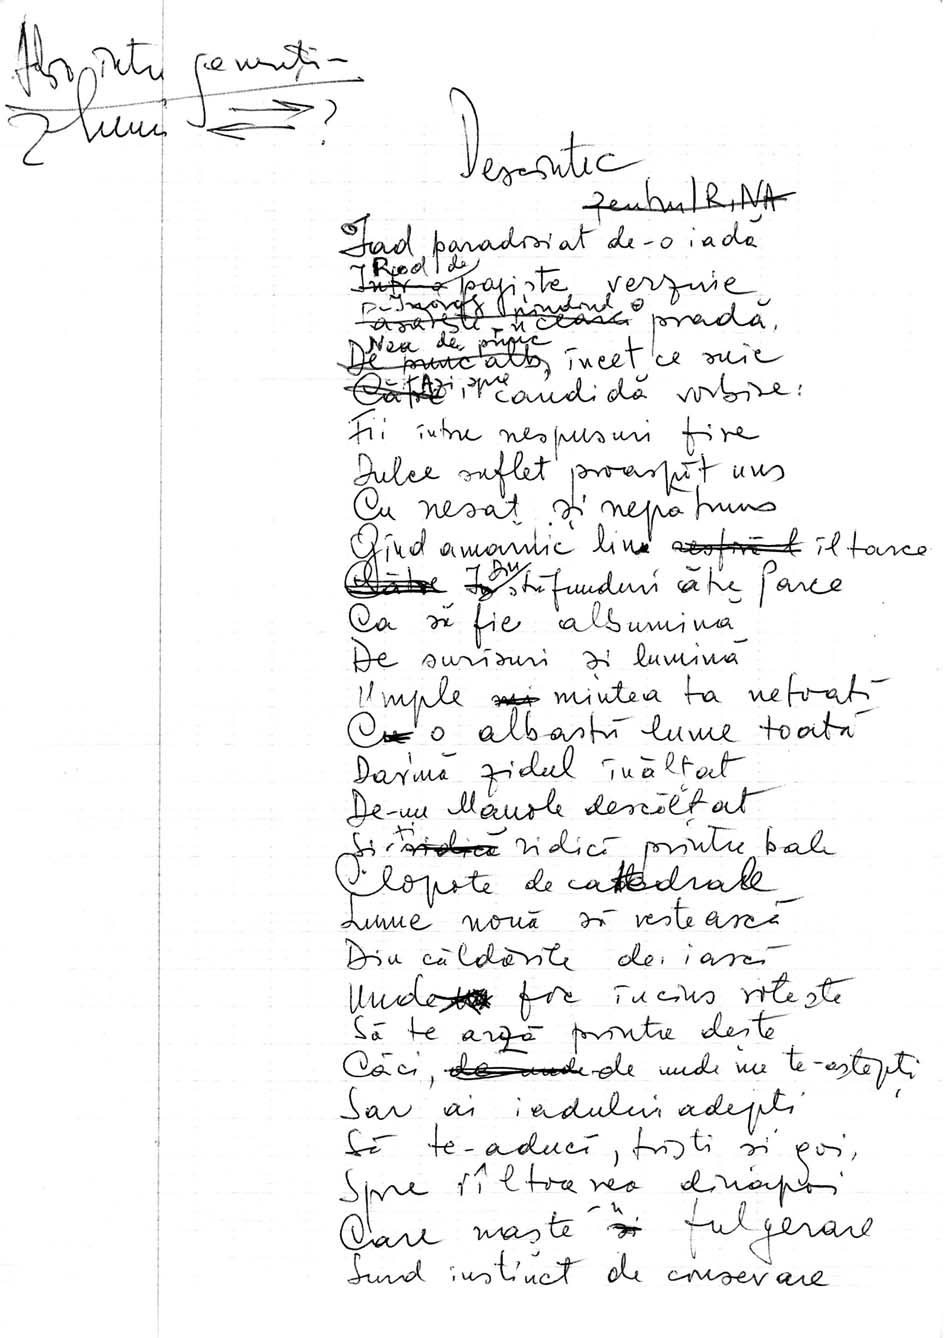 2 lumi ?
Descântec
pentru IRINA
Iad paradisiat de-o iadă
Rod de
Într-o pajiște verzuie
pradă,
Nea de punc
De punc alb, încet ce suie
Către candidă vorbire:
Fii între nespusuri fire
Dulce suflet proaspăt uns
Cu nesaț și nepătruns
Gînd amarnic lin îl toarce
Către În Din străfunduri către Parce
Ca să fie albumină
De surîsuri și lumină
Umple mintea ta netoată
Cu o albastră lume toată
Darîmă zidul înălțat
De-un Manole descălțat
Și-ți ridică ridică printre bale
Clopote de catedrale
Lume nouă să vestească
Din căldările de iască
Unde foc încins rotește
Să te arză printre dește
Căci, de unde de unde nu te-aștepți
Sar ai iadului adepți
Să te-aducă, triști și goi,
Spre rîltoarea dinapoi
Care naște fulgerare
Surd instinct de conservare